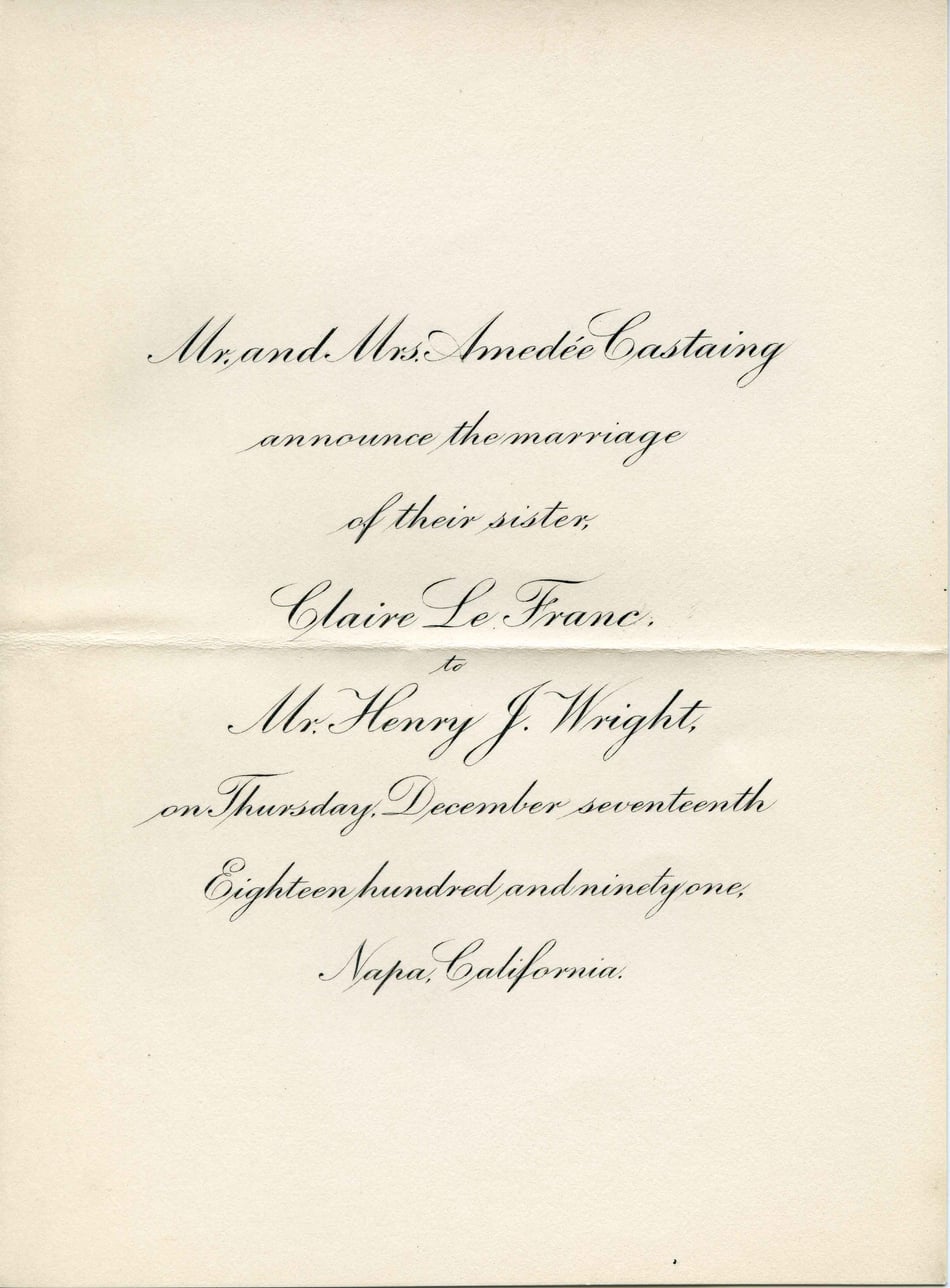 Mr. and Mrs. Amedée Castaing
announce the marriage
of their sister,
Claire Le Franc.
to
Mr. Henry J. Wright,
on Thursday, December seventeenth
Eighteen hundred and ninety one,
Napa, California.